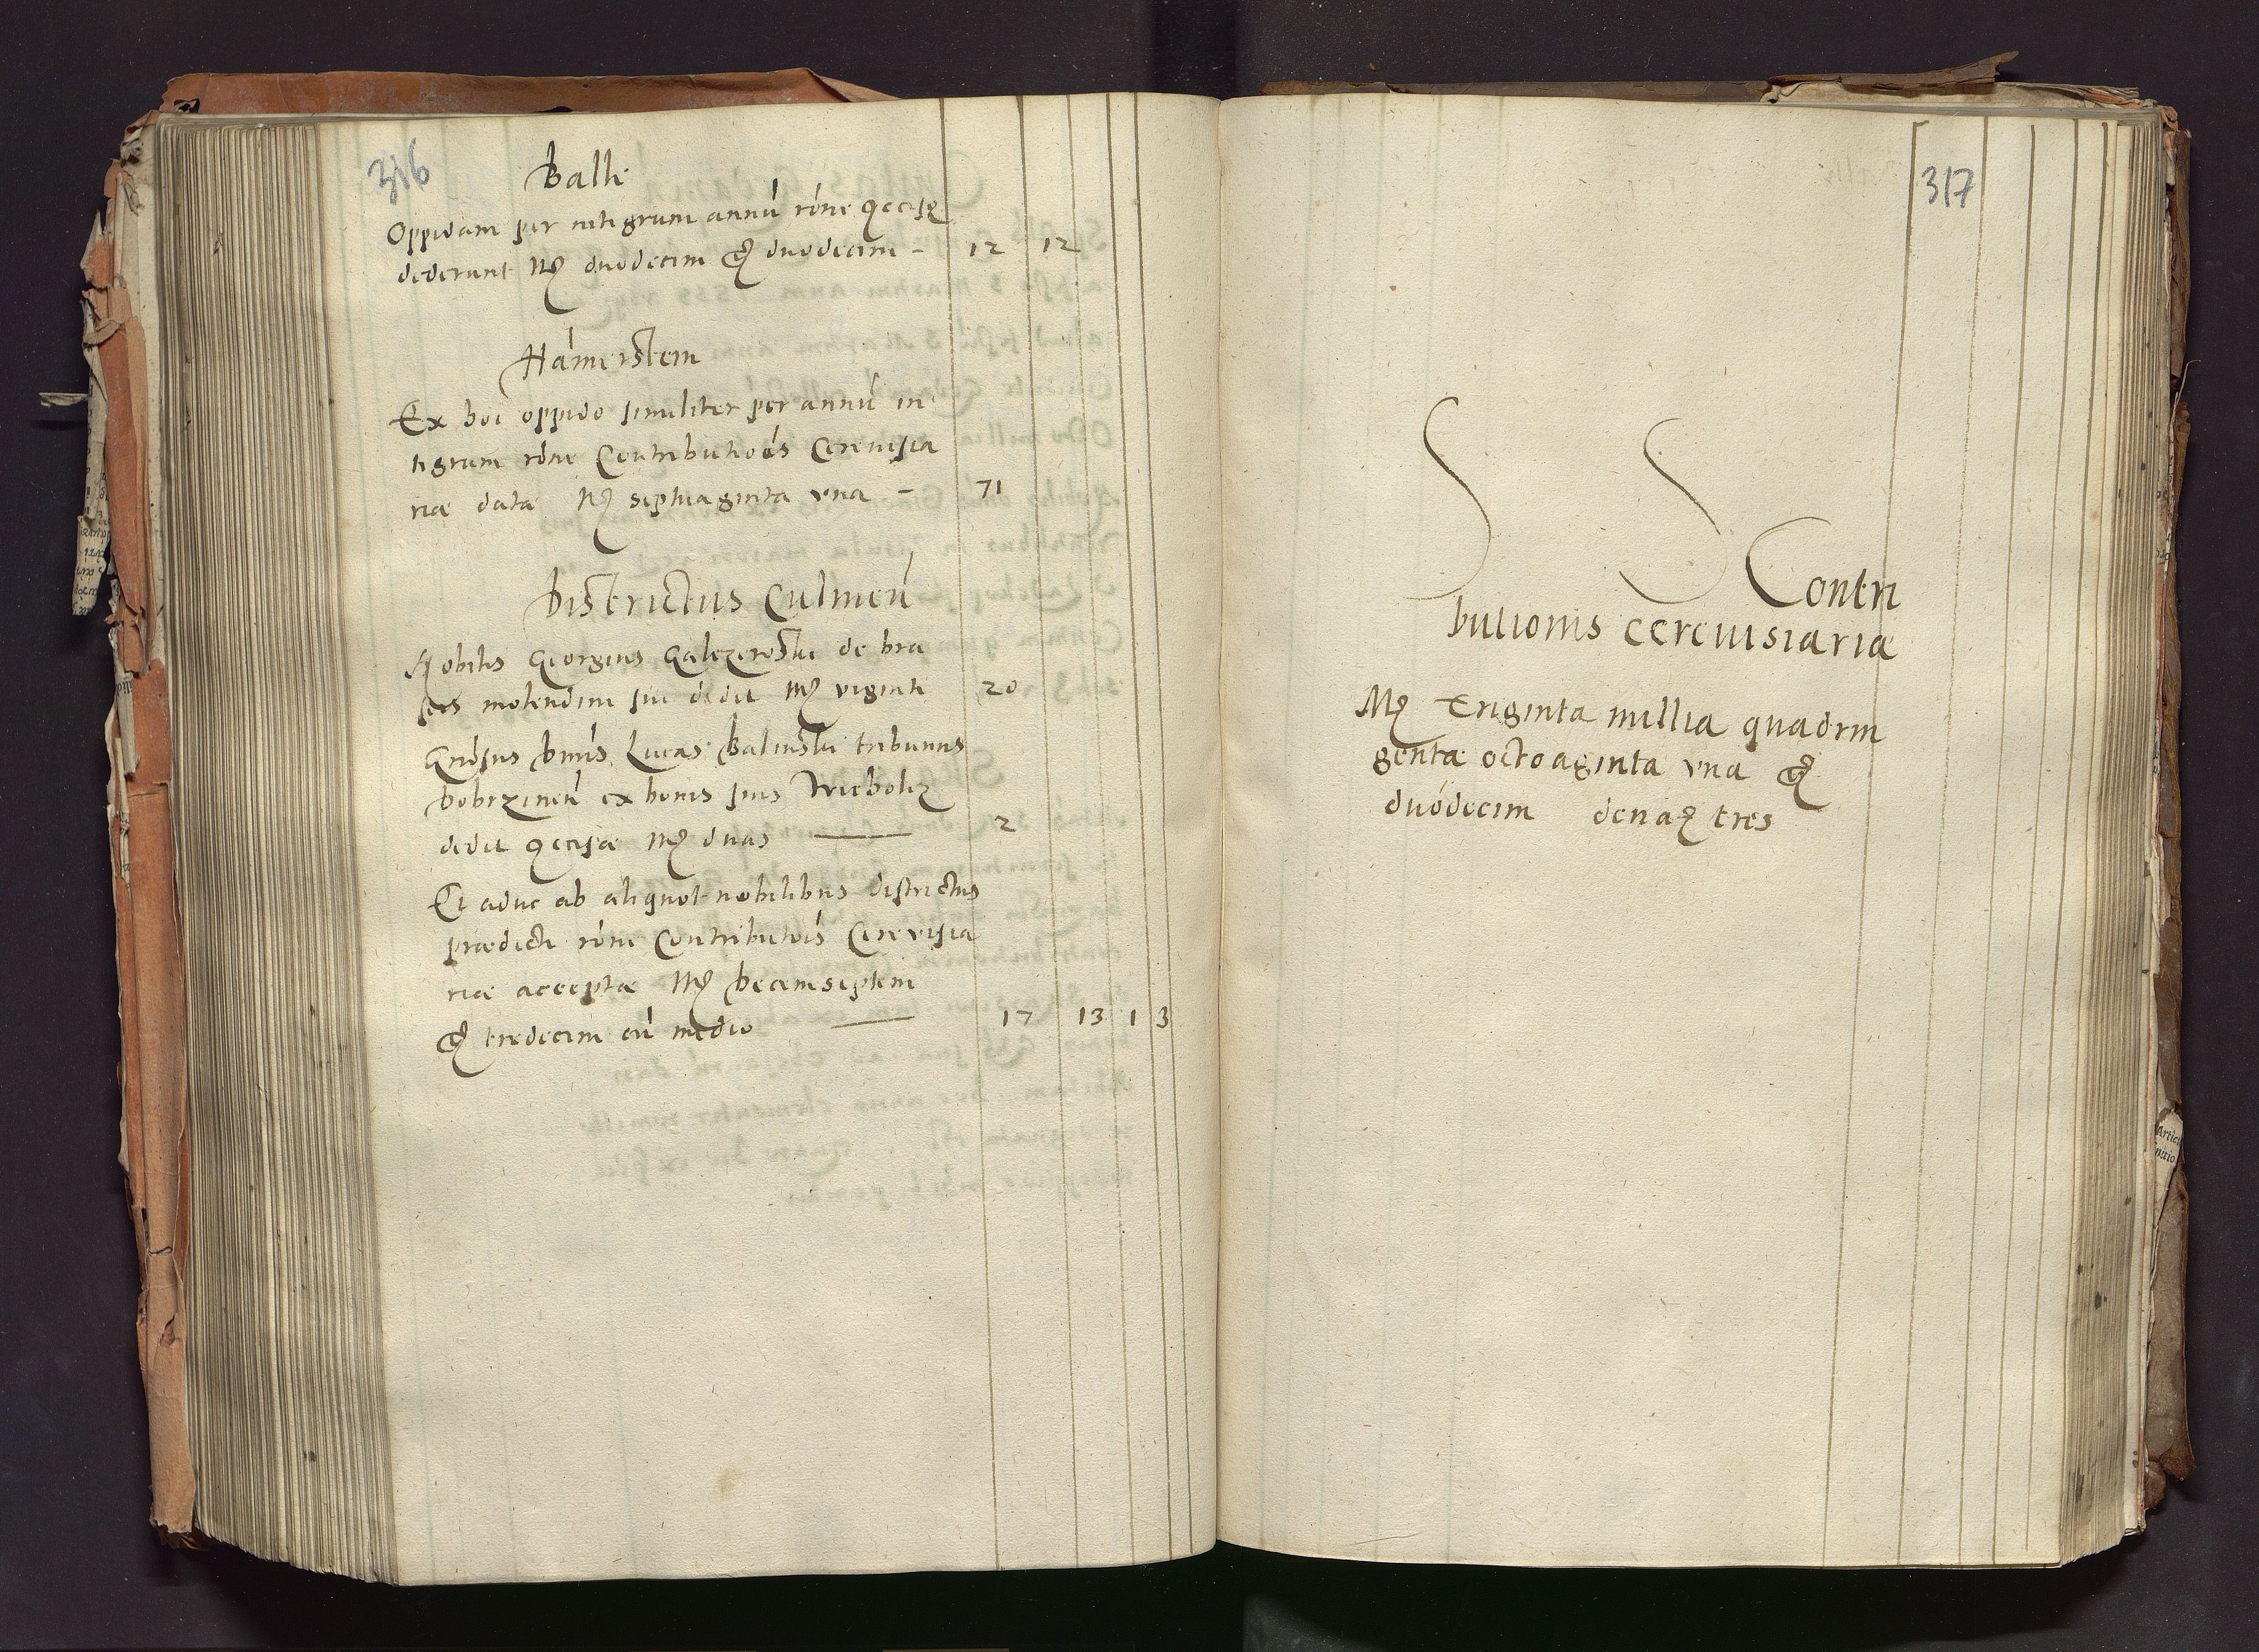 316
Balli
Oppidam per integrum annū rōne
dederunt Mꝝ duodecim gꝝ duodecim - 12 12
Hamerstein
Ex hoc oppido similiter per annū in
tegrum rōne Contributiois Cerevisia
riæ datæ Mꝝ septuaginta una - 71
Districtus Culmeñ
Nobilis Georgius de bra
seo molendini sui dedit Mꝝ viginti 20
Lucas tribunus
Dobrzineñ ex bonis suis
dedit Mꝝ duas — 2
Et aduc ab aliquot nobilibus districtus
prædicti rōne Contributōis Cerevisia
riæ acceptæ Mꝝ Decemseptem
gꝝ tredecim cū medio — 17 13 1 3
317
S S Contri
butionis cerevisiariæ
Mꝝ triginta millia quadrin
gentæ octoaginta una gꝝ
duodecim denaꝝ tres